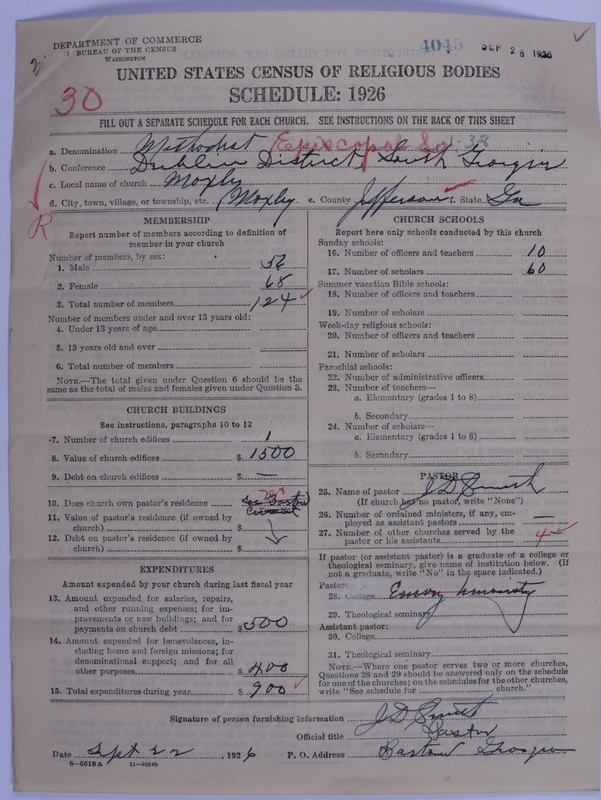 DEPARTMENT OF COMMERCE
BUREAU OF THE CENSUS
WASHINGTON
4045
SEP 28 1926
UNITED STATES CENSUS OF RELIGIOUS BODIES
SCHEDULE: 1926
30
FILL OUT A SEPARATE SCHEDULE FOR EACH CHURCH. SEE INSTRUCTIONS ON THE BACK OF THIS SHEET
a. Denomination Methodist Episcopal So 1:38
b. Conference Dublin District, South Georgia
c. Local name of church Moxley
d. City, town, village, or township, etc. (Moxley. e. County Jefferson f. State Ga
R
MEMBERSHIP
Report number of members according to definition of
member in your church
Number of members, by sex:
1. Male 56
2. Female 68
3. Total number of members 124
Number of members under and over 13 years old:
4. Under 13 years of age
5. 13 years old and over
6. Total number of members
NOTE.—The total given under Question 6 should be the
same as the total of males and females given under Question 3.
CHURCH BUILDINGS
See instructions, paragraphs 10 to 12
7. Number of church edifices 1
8. Value of church edifices $ 1500
9. Debt on church edifices $ —
10. Does church own pastor's residence
11. Value of pastor's residence (if owned by
church) $
12. Debt on pastor's residence (if owned by
church) $
EXPENDITURES
Amount expended by your church during last fiscal year
13. Amount expended for salaries, repairs,
and other running expenses; for im-
provements or new buildings; and for
payments on church debt $ 500
14. Amount expended for benevolences, in-
cluding home and foreign missions; for
denominational support; and for all
other purposes $ 400
15. Total expenditures during year $ 900
CHURCH SCHOOLS
Report here only schools conducted by this church
Sunday schools:
16. Number of officers and teachers 10
17. Number of scholars 60
Summer vacation Bible schools:
18. Number of officers and teachers
19. Number of scholars
Week-day religious schools:
20. Number of officers and teachers
21. Number of scholars
Parochial schools:
22. Number of administrative officers
23. Number of teachers—
a. Elementary (grades 1 to 8)
b. Secondary
24. Number of scholars—
a. Elementary (grades 1 to 8)
b. Secondary
PASTOR
25. Name of pastor J D Smith
(If church has no pastor, write "None")
26. Number of ordained ministers, if any, em-
ployed as assistant pastors —
27. Number of other churches served by the
pastor or his assistants 4
If pastor (or assistant pastor) is a graduate of a college or
theological seminary, give name of institution below. (If
not a graduate, write "No" in the space indicated.)
Pastor:
28. College Emory University
29. Theological seminary
Assistant pastor:
30. College
31. Theological seminary
NOTE.—Where one pastor serves two or more churches,
Questions 28 and 29 should be answered only on the schedule
for one of the churches; on the schedules for the other churches,
write "See schedule for church."
Signature of person furnishing information J D Smith
Official title Pastor
Date Sept 22, 1926 P. O. Address Bartow Georgia
8—5518a 11—9554b